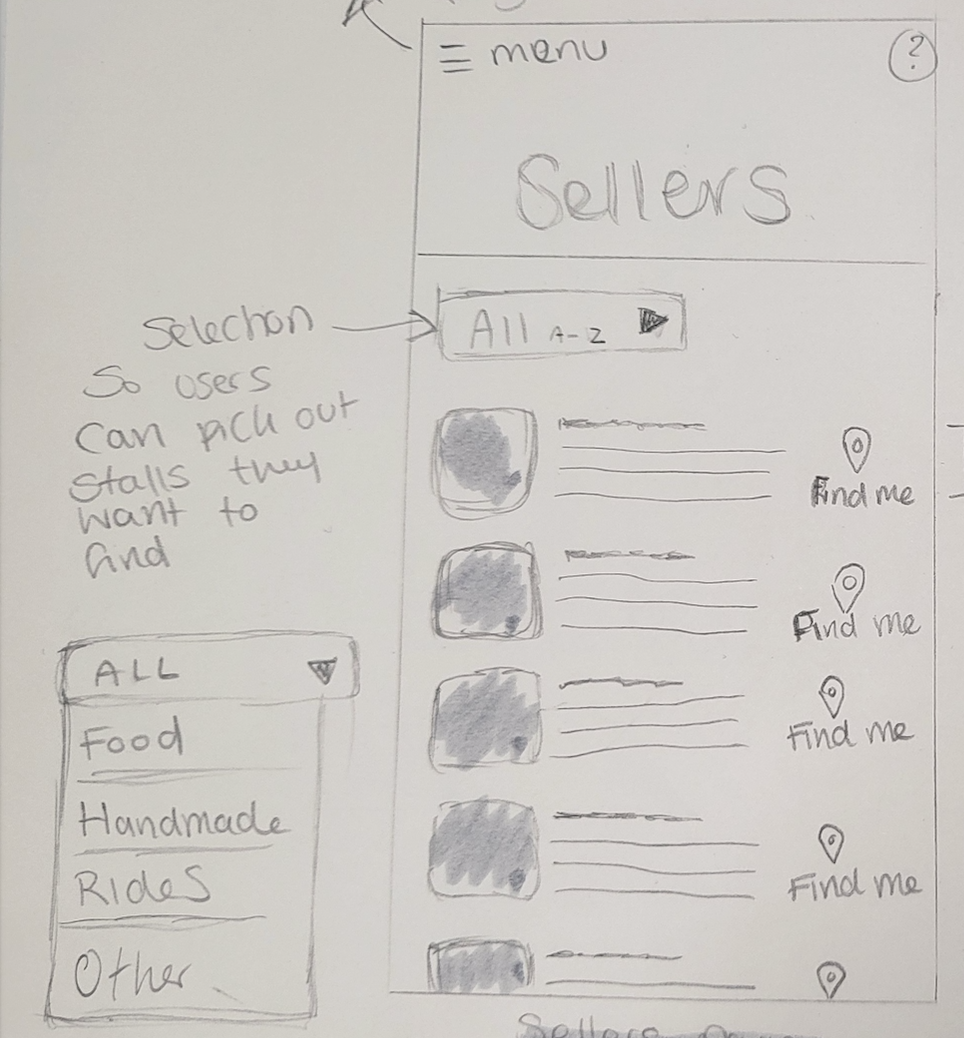 menu
?
Sellers
All A-Z
Selection
So users
Can pick out
Stalls they
Want to
find
Find me
Find me
Find me
Find me
ALL
Food
Handmade
Rides
Other
Sellers